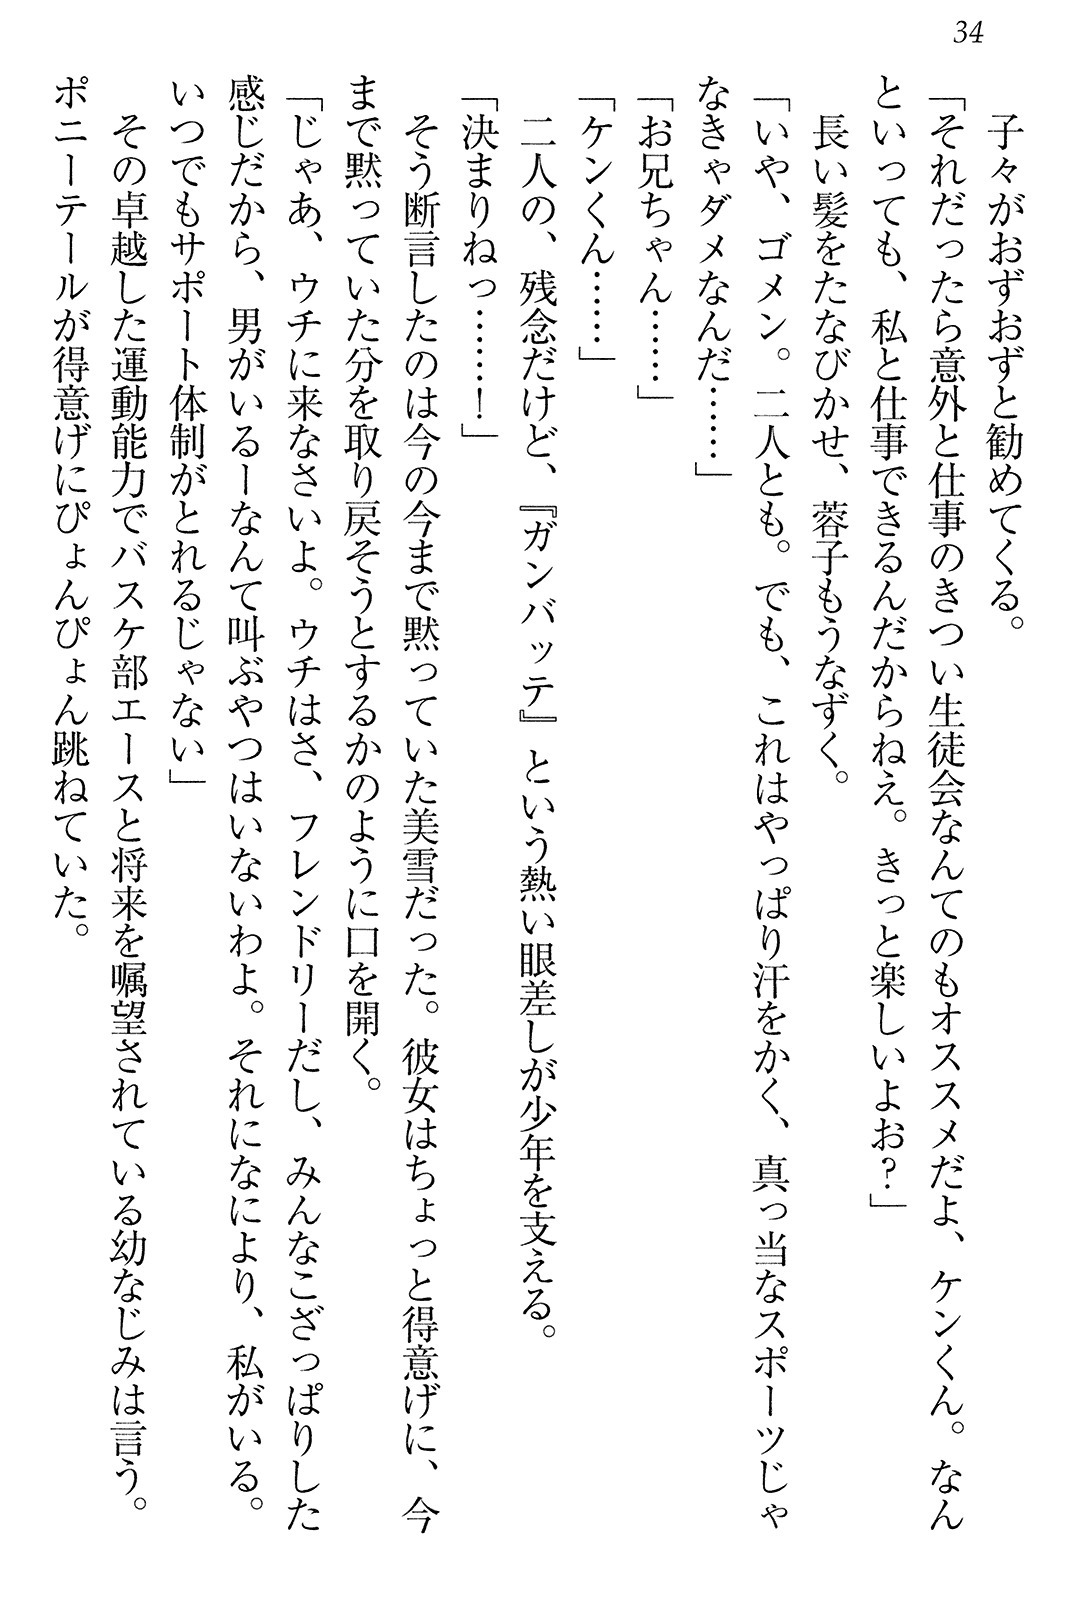 34
子々がおずおずと勧めてくる。
「それだったら意外と仕事のきつい生徒会なんてのもオススメだよ、ケンくん。なん
といっても、私と仕事できるんだからねえ。きっと楽しいよお？」
長い髪をたなびかせ、蓉子もうなずく。
「いや、ゴメン。二人とも。でも、これはやっぱり汗をかく、真っ当なスポーツじゃ
なきゃダメなんだ……」
「お兄ちゃん……」
「ケンくん……」
二人の、残念だけど、『ガンバッテ』という熱い眼差しが少年を支える。
「決まりねっ……！」
そう断言したのは今の今まで黙っていた美雪だった。彼女はちょっと得意げに、今
まで黙っていた分を取り戻そうとするかのように口を開く。
「じゃあ、ウチに来なさいよ。ウチはさ、フレンドリーだし、みんなこざっぱりした
感じだから、男がいるーなんて叫ぶやつはいないわよ。それになにより、私がいる。
いつでもサポート体制がとれるじゃない」
その卓越した運動能力でバスケ部エースと将来を嘱望されている幼なじみは言う。
ポニーテールが得意げにぴょんぴょん跳ねていた。